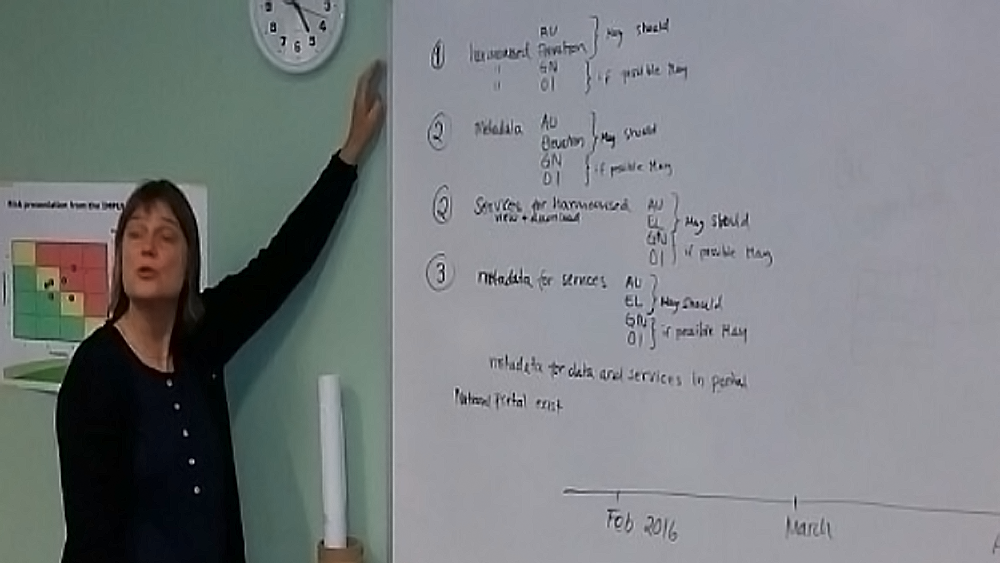 Risk presentation from the IMPU
9 3
8 4
7 6 5
1 Harmonised AU } May should
" Elevation
" GN } if possible May
" OI
2 Metadata AU } May should
Elevation
GN } if posible May
OI
2 Services for harmonised AU } May should
view + download EL
GN } if possible May
OI
3 metadata for services AU } May should
EL
GN } if possible May
OI
metadata for data and services in portal
National Portal exist
Feb 2016 March A